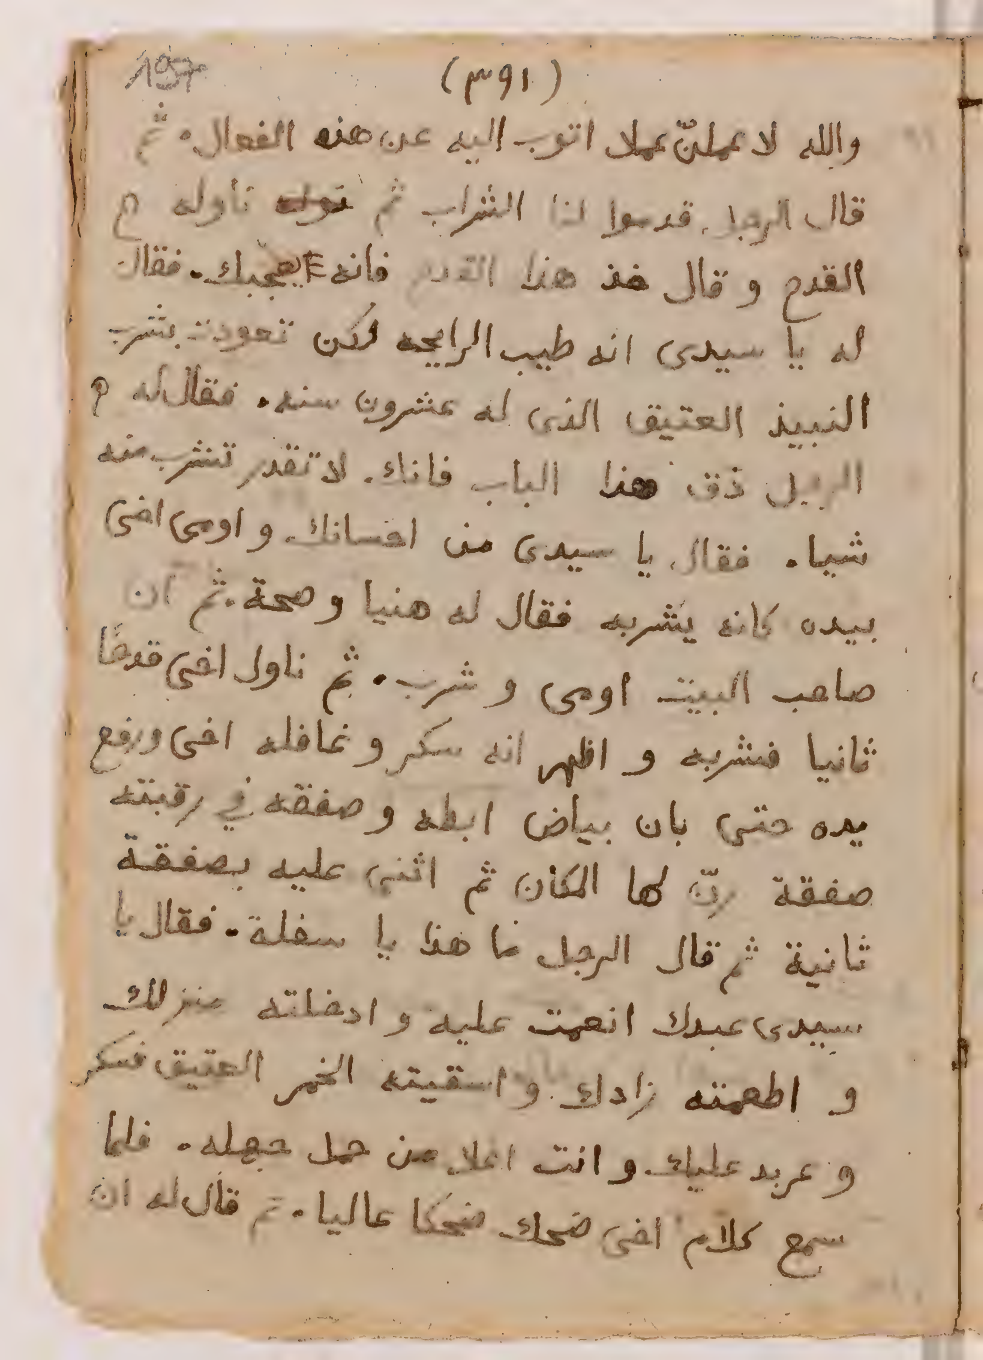 197
(٣٩١)
والله لا عملنّ عملا اتوب اليه عن هذه الفعال. ثم
قال الرجل قدموا لنا الشراب ثم ناوله
القدح و قال خذ هذا القدح فانه يعجبك. فقال
له يا سيدى انه طيب الرايحه لكن تعودت بشرب
النبيذ العتيق الذى له عشرون سنه. فقال له
الرجل ذق هذا الباب فانك لا تقدر تشرب منه
شيا. فقال يا سيدى من احسانك و اومى اخى
بيده كانه يشربه فقال له هنيا و صحة. ثم ان
صاحب البيت اومى و شرب. ثم ناول اخى قدحًا
ثانيا فشربه و اظهر انه سكر و غافله اخى ورفع
يده حتى بان بياض ابطه و صفقه في رقبته
صفقة رنّ لها المكان ثم اثنى عليه بصفقة
ثانية ثم قال الرجل ما هذا يا سفلة. فقال يا
سيدى عبدك انعمت عليه و ادخلته منزلك
و اطعمته زادك و اسقيته الخمر العتيق فسكر
و عربد عليك و انت اعلا من حمل جهله. فلما
سمع كلام اخى ضحك ضحكا عاليا. ثم قال له ان